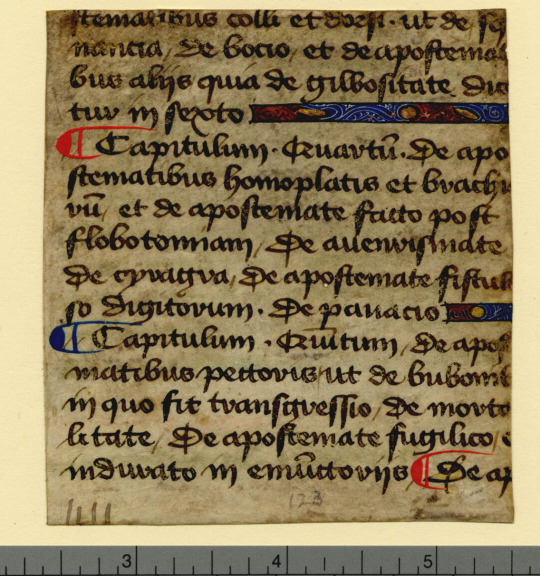 stematibus colli et dorsi · ut de
nancia, de bocio, et de apostema
bus alijs quia de gibbositate dic
tur in sexto
Capitulum · Quartū · De apo
stematibus homoplatis et brachi
rū, et de apostemate facto post
flobotomiam, De aneurismate
De cyragra, De apostemate fistul
so digitorum · De panacio
Capitulum · Quītum, de apos
matibus pectoris, ut de bubone
in quo fit transgressio, de morto
litate, De apostemate fugilico,
indurato in emūctorijs De ap
123
3 4 5